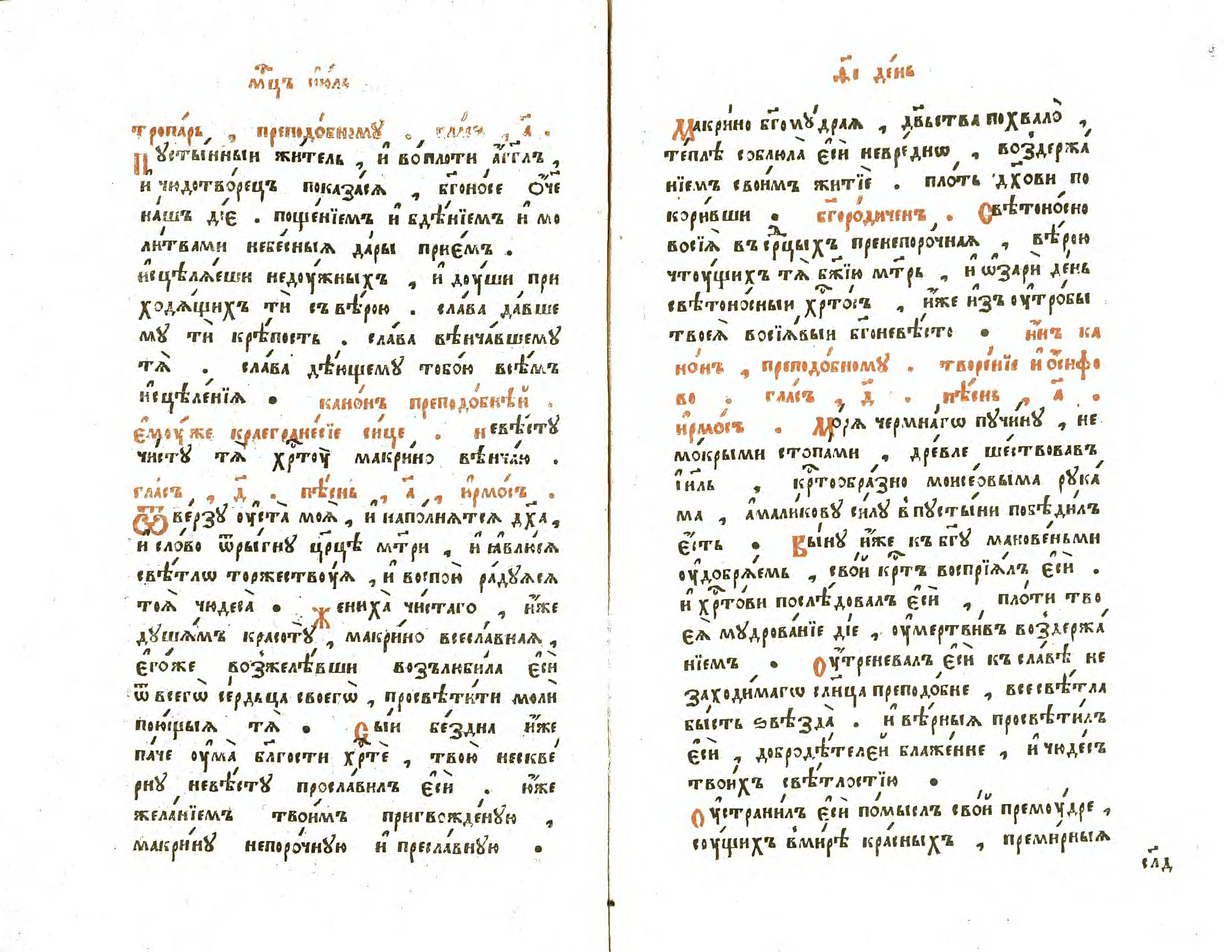 мⷭ҇цъ і҆ю́ль
тропа́рь , преподо́бному . гла́съ , а҃ .
Пꙋсты́нныи жи́тель , и҆ во́плоти а҆́гг҃лъ ,
и҆ чюдотво́рецъ показа́сѧ , бг҃оно́се ѻ҆́ч҃е
на́шъ ді́е . поще́нїемъ и҆ бдѣ́нїемъ и҆ мо
ли́твами небе́сныѧ да́ры прїе́мъ .
и҆сцѣлѧ́еши недꙋ́жныхъ , и҆ дꙋ́ши при
ходѧ́щихъ тѝ съ вѣ́рою . сла́ва да́вше
мꙋ тѝ крѣ́пость . сла́ва вѣнча́вшемꙋ
тѧ̀ . сла́ва дѣ́ющемꙋ тобо́ю всѣ́мъ
и҆сцѣле́нїѧ . кано́нъ преподо́бнѣй .
є҆мꙋ́же краегране́сїе си́це . невѣ́стꙋ
чи́стꙋ тѧ̀ хрⷭ҇тꙋ̀ макри́но вѣнча́ю .
гла́съ , д҃ . пѣ́снь , а҃ , і҆рмо́съ .
Ѿве́рзꙋ оу҆ста̀ моѧ̀ , и҆ напо́лнѧтсѧ дх҃а ,
и҆ сло́во ѿры́гнꙋ цр҃цѣ мт҃ри , и҆ ꙗ҆влю́сѧ
свѣ́тлѡ торжествꙋ́ѧ , и҆ воспою̀ ра́дꙋѧсѧ
тоѧ̀ чюдеса̀ . Жениха̀ чи́стаго , и҆́же
дꙋша́мъ красотꙋ̀ , макри́но всесла́внаѧ ,
є҆го́же возжелѣ́вши возълюби́ла є҆сѝ
ѿ всегѡ̀ се́рдьца своегѡ̀ , просвѣти́ти молѝ
пою́щыѧ тѧ̀ . Сы́и бе́здна и҆́же
па́че оу҆ма̀ бл҃гости хрⷭ҇тѐ , твою̀ нескве́
рнꙋ невѣ́стꙋ просла́вилъ є҆сѝ . ю҆́же
жела́нїемъ твои́мъ пригвожде́нꙋю ,
макри́нꙋ непоро́чнꙋю и҆ пресла́внꙋю .
ѳ҃і де́нь
Макри́но бг҃омꙋ́драѧ , дв҃ьства похвало̀ ,
те́плѣ соблюла̀ є҆сѝ невре́днѡ , воздержа́
нїемъ свои́мъ житїѐ . пло́ть дх҃ови по
кори́вши . бг҃оро́диченъ . Свѣтоно́сно
восїѧ̀ въ ср҃цыхъ пренепоро́чнаѧ , вѣ́рою
чтꙋ́щихъ тѧ̀ бж҃їю мт҃рь , и҆ ѡ҆зарѝ де́нь
свѣтоно́сныи хрⷭ҇то́съ , и҆́же и҆з̾ оу҆тро́бы
твоеѧ̀ восїѧ́выи бг҃оневѣ́сто . и҆́нъ ка
но́нъ , преподо́бномꙋ . творе́нїе и҆о́сифо
во . гла́съ , д҃ . пѣ́снь , а҃ .
і҆рмо́съ . Мо́рѧ че́рмнагѡ пꙋчи́нꙋ , не
мо́крыми стопа́ми , дре́вле ше́ствовавъ
і҆и҃ль , крⷭ҇тоѡбра́зно моисе́овыма рꙋка́
ма , а҆мали́ковꙋ си́лꙋ в̾пꙋсты́ни побѣди́лъ
є҆́сть . Вы́нꙋ и҆́же къ бг҃ꙋ манове́ньми
оу҆добрѧ́емь , сво́й крⷭ҇тъ воспрїѧ́лъ є҆сѝ .
и҆ хрⷭ҇то́ви послѣ́довалъ є҆сѝ , пло́ти тво
еѧ̀ мꙋдрова́нїе ді́е , оу҆мертви́въ воздержа́
нїемъ . Оу҆́треневалъ є҆сѝ къ сла́вѣ не
заходи́магѡ сл҃нца преподо́бне , всесвѣ́тла
бы́сть ѕвѣзда̀ . и҆ вѣ́рныѧ просвѣти́лъ
є҆сѝ , добродѣ́телей блаже́нне , и҆ чюде́съ
твои́хъ свѣ́тлостїю .
Оу҆страни́лъ є҆сѝ по́мыслъ сво́й премꙋ́дре ,
сꙋ́щихъ в̾ми́рѣ кра́сныхъ , преми́рныѧ
сл҃д